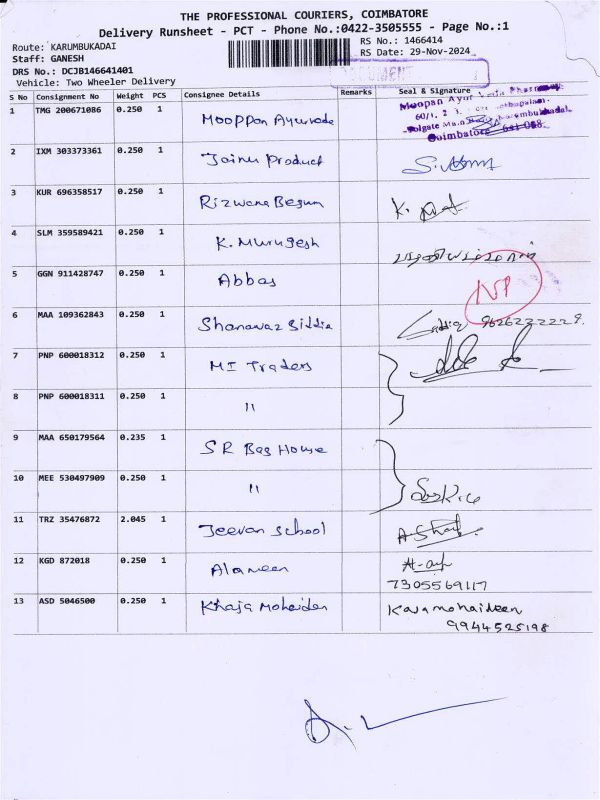 THE PROFESSIONAL COURIERS, COIMBATORE
Delivery Runsheet - PCT - Phone No.:0422-3505555 - Page No.:1
Route: KARUMBUKADAI
RS No.: 1466414
Staff: GANESH
RS Date: 29-Nov-2024
DRS No.: DCJB146641401
Vehicle: Two Wheeler Delivery
S No Consignment No Weight PCS Consignee Details Remarks Seal & Signature
1 TMG 200671086 0.250 1 Mooppan Ayurvade
Moopan Ayur
60/1, 2
Coimbatore - 641 008.
2 IXM 303373361 0.250 1 Jainu Product
3 KUR 696358517 0.250 1 Rizwana Begum K.
4 SLM 359589421 0.250 1 K. Murugesh
5 GGN 911428747 0.250 1 Abbas NP
6 MAA 109362843 0.250 1 Shanawaz Siddia 9626222229.
7 PNP 600018312 0.250 1 MI Traders
8 PNP 600018311 0.250 1 "
9 MAA 650179564 0.235 1 SR Bag House
10 MEE 530497909 0.250 1 "
11 TRZ 35476872 2.045 1 Jeevan School
12 KGD 872018 0.250 1 Alameen
7305569117
13 ASD 5046500 0.250 1 Khaja Mohaiden Kajamohaideen
9944525198